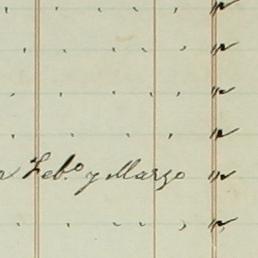 " " " " "
" " " " "
" " " " "
" " " " "
Feb.º y Marzo "
" " " " "